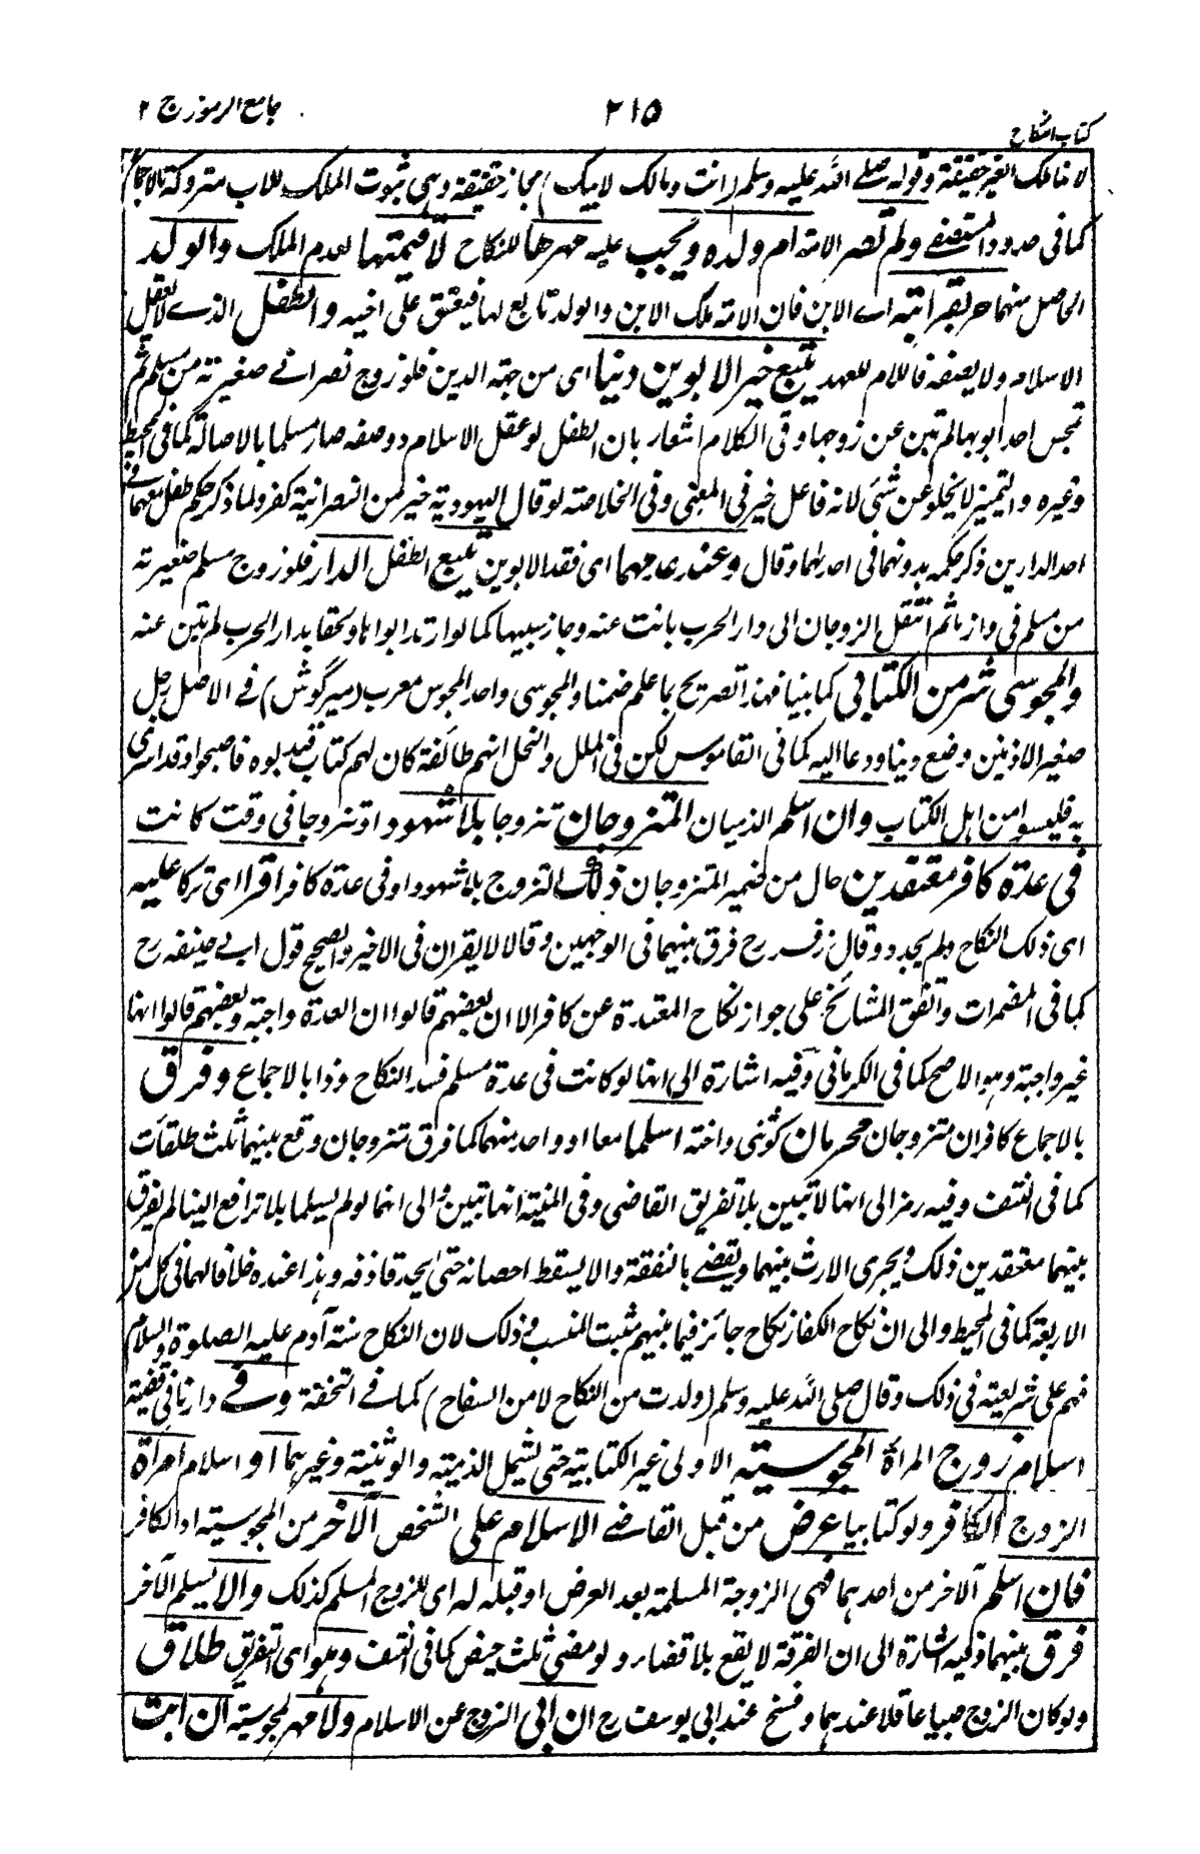 جامع الرموز ج ٢
٢١٥
كتاب النكاح
لا تملك الغير حقيقة وقوله صلے الله عليه وسلم (انت ومالك لابيك) مجاز حقيقة وهى ثبوت الملك للاب متروكة بالاجماع
كما فى حدود المستصفے ولم تصر الامة ام ولده ويجب عليه مهرها للنكاح لا قيمتها لعدم الملك والولد
الحاصل منهما حر بقرابته اے الابن فان الامة ملك الابن والولد تابع لها فيعتق على اخيه والطفل الذے لا يعقل
الاسلام ولا يصفه فاللام للعهد يتبع خير الابوين دينا اى من جهة الدين فلو زوج نصرانے صغيرته من مسلم ثم
تمجس احد ابويها لم تبن عن زوجها وفى الكلام اشعار بان الطفل لو عقل الاسلام ووصفه صار مسلما بالاصالة كما فى المحيط
وغيره والتميز لا يخلو عن شئى لانه فاعل خير فى المعنى وفى الخلاصة لو قال اليهودية خير من النصرانية كفر ولما ذكر حكم طفل معهما فے
احد الدارين ذكر حكمه بدونهما فى احدهما وقال وعند عدمهما اى فقد الابوين يتبع الطفل الدار فلو زوج مسلم صغيرته
من مسلم فى دارنا ثم انتقل الزوجان الى دار الحرب بانت عنه وجاز سبيها كما لو ارتد ابواها ولحقا بدار الحرب لم تبن عنه
والمجوسى شر من الكتابى كما بينا فهذا تصريح بما علم ضمنا والمجوسى واحد المجوس معرب (ميرگوش) فے الاصل رجل
صغير الاذنين وضع دينا ودعا اليه كما فى القاموس لكن فى الملل والنحل انهم طائفة كان لهم كتاب فبدلوه فاصبحوا وقد اسرى
به فليسوا من اهل الكتاب وان اسلم الذميان المتزوجان تزوجا بلا شهود او تزوجا فى وقت كانت
فى عدة كافر معتقدين حال من ضمير المتزوجان ذلك التزوج بلا شهود او فى عدة كافر اقرا اى تركا عليه
اى ذلك النكاح ولم يجدد وقال زفر رح فرق بينهما فى الوجهين وقالا لا يقران فى الاخير والصحيح قول ابے حنيفه رح
كما فى المضمرات واتفق المشائخ على جواز نكاح المعتدة عن كافر الا ان بعضهم قالوا ان العدة واجبة وبعضهم قالوا انها
غير واجبة وهو الاصح كما فى الكرمانى وفيه اشارة الى انها لو كانت فى عدة مسلم فسد النكاح وذا بالاجماع وفرق
بالاجماع كافران متزوجان محرمان كوثنى واخته اسلما معا او واحد منهما كما فرق متزوجان وقع بينهما ثلث طلقات
كما فى النتف وفيه رمز الى انها لا تبين بلا تفريق القاضى وفى المنية انها تبين والى انهما لو لم يسلما بلا ترافع الينا لم يفرق
بينهما معتقدين ذلك ويجرى الارث بينهما ويقضے بالنفقة ولا يسقط احصانه حتى يحد قاذفه وهذا عنده خلافا لهما فى كل من
الاربعة كما فى المحيط والى ان نكاح الكفار نكاح جائز فيما بينهم مثبت للنسب وذلك لان النكاح سنة آدم عليه الصلوة والسلام
فهم على شريعته فى ذلك وقال صلى الله عليه وسلم (ولدت من النكاح لا من السفاح) كما فے التحفة وفے دارنا فى قضية
اسلام زوج المرأة المجوسية الاولى غير الكتابية حتى يشمل الذمية والوثنية وغيرهما او اسلام امرأة
الزوج الكافر ولو كتابيا عرض من قبل القاضے الاسلام على الشخص الآخر من المجوسية او الكافر
فان اسلم الآخر من احدهما فهى الزوجة المسلمة بعد العرض او قبله له اى للزوج المسلم كذلك والا يسلم الآخر
فرق بينهما وفيه اشارة الى ان الفرقة لا يقع بلا قضاء ولو مضى ثلث حيض كما فى النتف وهو اى التفريق طلاق
ولو كان الزوج صبيا عاقلا عندهما وفسخ عند ابى يوسف رح ان ابى الزوج عن الاسلام ولا مهر لمجوسية ان ابت